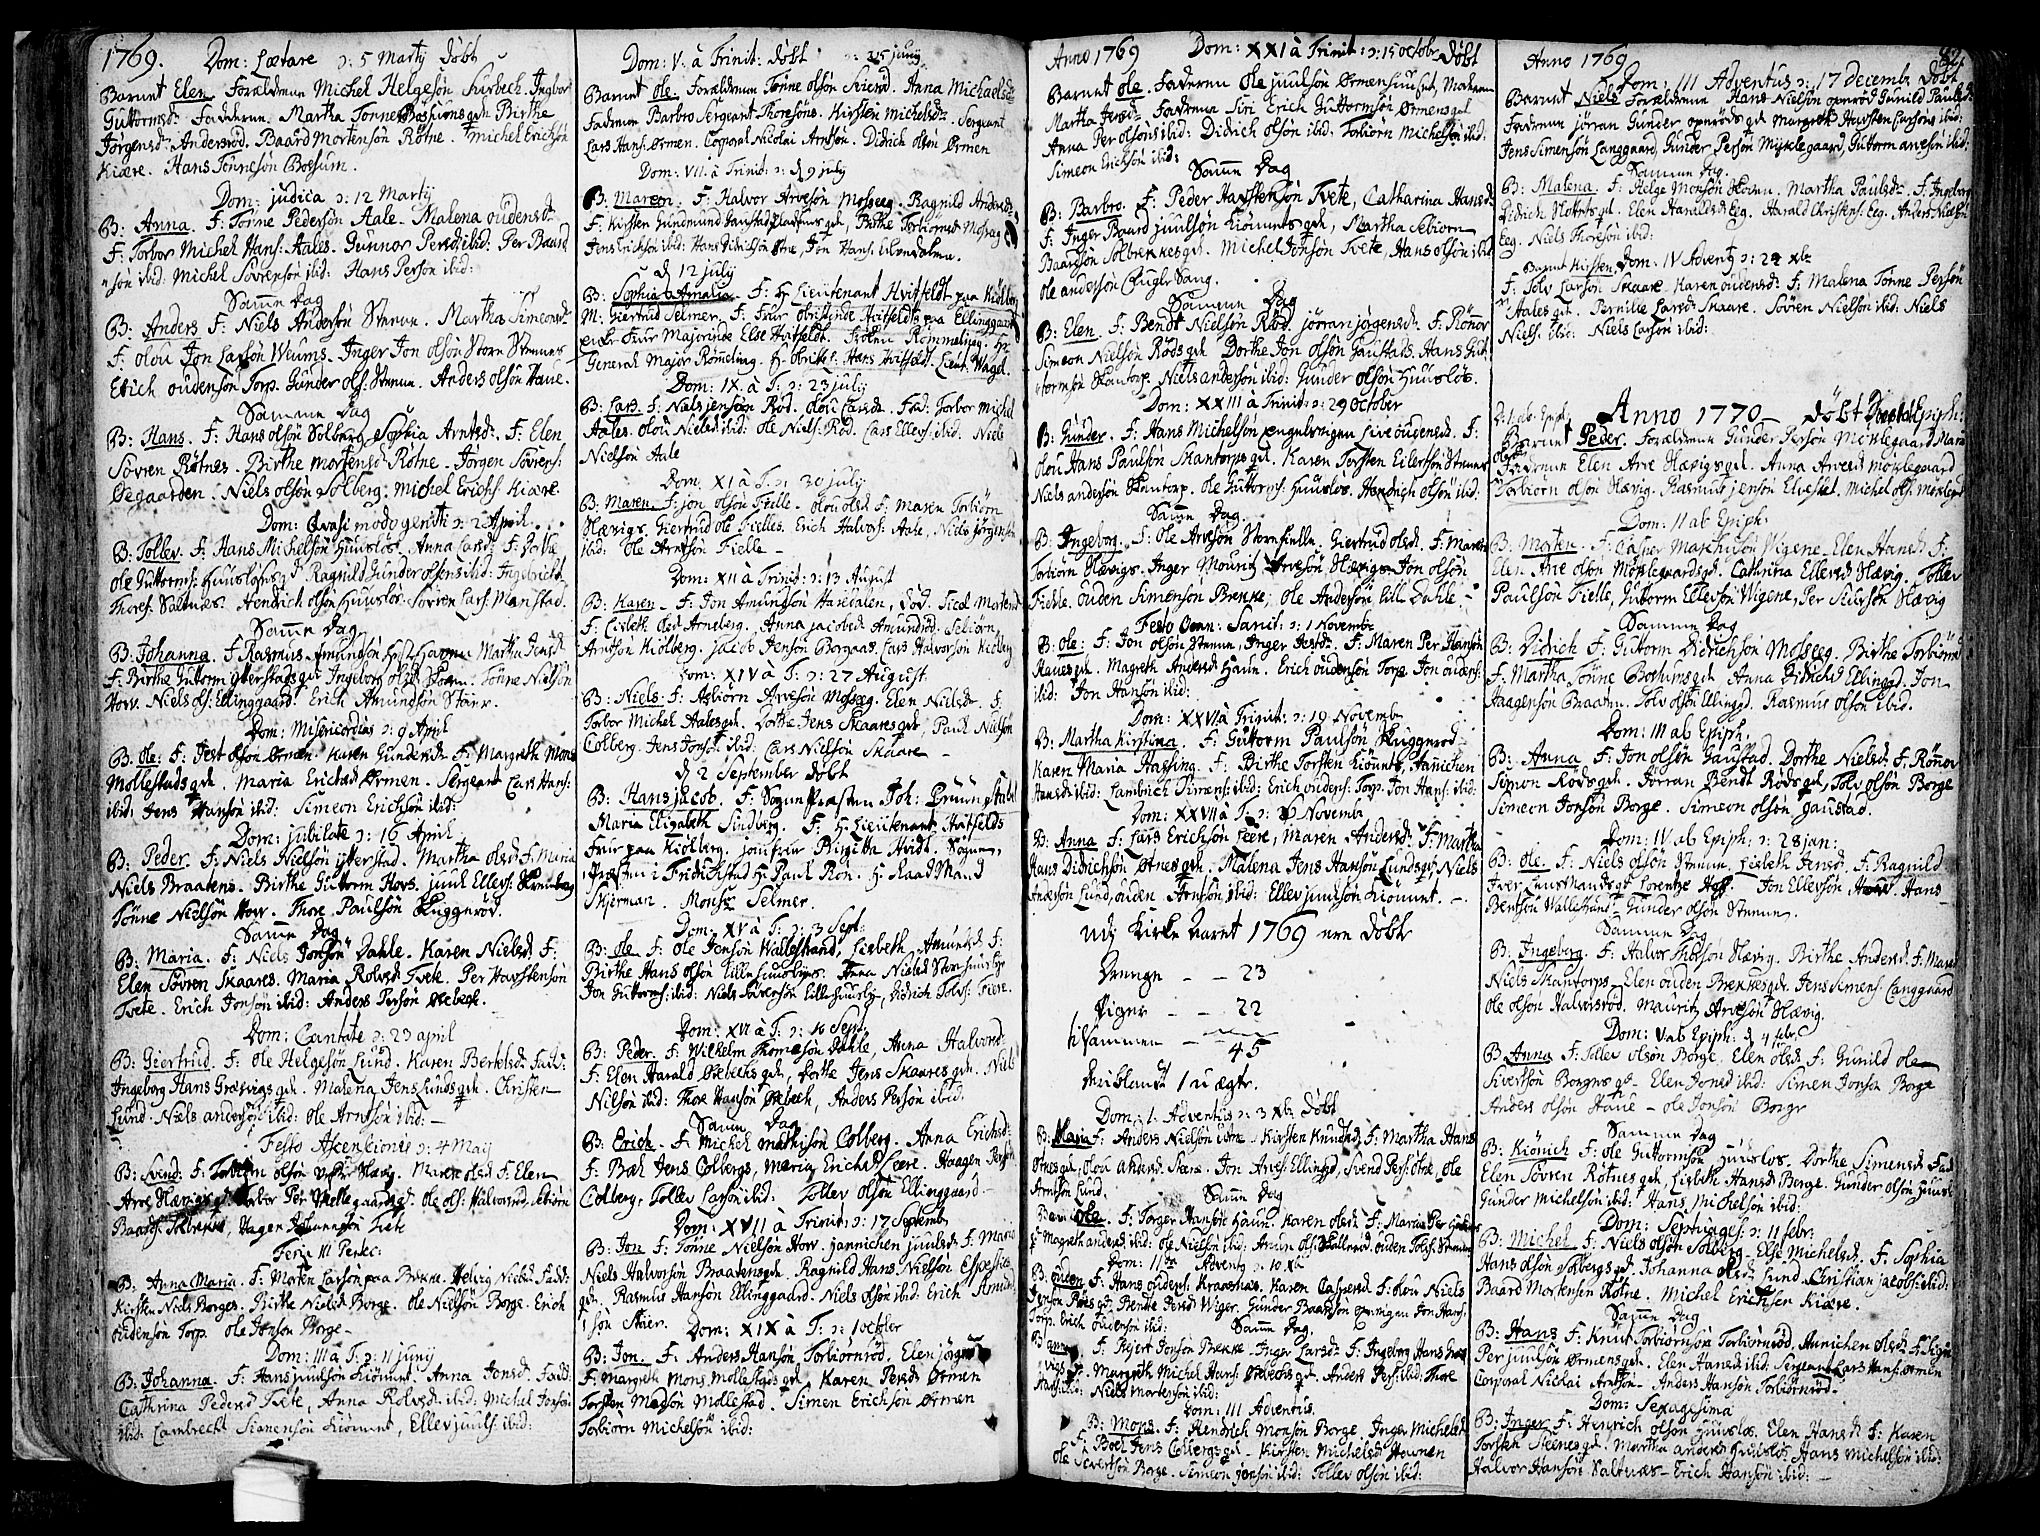 1769. Dom: Lætare ɔ: 5 Martij døbt
Barnet Elen. Forældrenn Michel Helgesøn Surbech. Ingbor
Guttormsd: Fadderenn. Martha Tønne Bossumsgd. Birthe
Jørgensd: Andersrød. Baard Mortensøn Rötne. Michel Erichsøn
Kiære. Hans Tönnesøn Bossum.
Dom: judica ɔ: 12 Martij
B: Anna. F: Tönne Pedersøn Aale. Malena oudensd:
F: Torbor Michel Hans: Aales. Gunnor Persd: ibid: Per Baard
søn ibid: Michel Sövrensøn ibid: Hans Persøn ibid:
Samme Dag
B: Anders F: Niels Andersøn Stenun. Martha Simensd:
F: olou Jon Larsøn Weums. Inger Jon olsøn Store Stenuns
Erich oudensøn Torp. Gunder ols: Stenun. Anders olsøn Haue.
Samme Dag
B: Hans. F: Hans olsøn Solberg. Sophia Arntsd: F: Elen
Sövren Rötnes. Birthe Mortensd Rötne. Jørgen Sövrens:
Øegaarden. Niels olsøn Solberg. Michel Erichs: Kiære.
Dom: Qvasi modo geniti ɔ: 2 April.
B: Tollev. F: Hans Michelsøn Huuslos. Anna Larsd: F:
ole Guttorms: Huuslossgd Ragnild Gunder olsens ibid: Ingebricht
Thores: Saltnes. Hendrich olsøn Huuslos. Sövren Lars: Manstad.
Samme Dag
B: Johanna. F: Rasmus Amundsøn Martha Jensd:
F: Birthe Guttorm Ytterstadsgd Ingeborg olsd Tönne Nielsøn
Hov. Niels ols: Ellinggaard. Erich Amundsøn Stöer.
Dom: Misericordias ɔ: 9 April
B: Ole: F: Jest olsøn Ørmen. Karen Gundersd: F: Margreth Mons
Mollestadsgd. Maria Erichsd Ørmen. Sergeant Lars Hans:
ibid: Jens Hansøn ibid: Simeon Erichsøn ibid:
Dom: jubilate ɔ: 16 April
B: Peder. F: Niels Nielsøn ytterstad. Martha olsd F: Maria
Niels Braatens. Birthe Guttorm Hovs. juul Ellevs:
Tönne Nielsøn Hov. Thore Paulsøn Ruggerød.
Samme Dag
B: Maria. F: Niels Jonsøn Dahle. Karen Nielsd: F:
Elen Sövren Skaares. Maria Rolvsd Tvete. Per Hausstensøn
Tvete. Erich Jonsøn ibid: Anders Persøn Ørebech.
Dom: Cantate ɔ: 23 april
B: Giertrud. F: Ole Helgesøn Lund. Karen Bertelsd: Fad:
Ingeborg Hans Græsvigsgd. Malena Jens Lundsgd. Christen
Lund. Niels andersøn ibid: Ole Arntsøn ibid:
Festo Ascensionis ɔ: 4 Maij
B: Svend: F: olsøn Slevig. Maren olsd F: Elen
Arve Slevigsgd. Torbor Per Ole ols: Halversrød.
Baards: , Hagen Johannsøn Tvete
Feria III Pentec:
B: Anna Maria. F: Morten Larsøn paa Brekke. Helvig Nielsd: Fadd:
Kirsten Niels Borges. Birthe Nielsd Borge. Ole Nielsøn Borge. Erich
oudensøn Torp. Ole Jonsøn Borge
Dom: III à T: ɔ: 11 junij
B: Johanna. F: Hans juulsøn Kiönnit. Anna Jonsd: Fadd:
Cathrina Pedersd Tvete, Anna Rolvsd: ibid: Michel Jonsøn
ibid: Lambrecht Simensøn Kiönnit, Ellev juuls: ibid:
Dom: V. à Trinit: døbt ɔ: 25 junij
Barnet Ole. Forældrenn Tönne olsøn Anna Michaelsd
Fadrenn Barbro Sergeant Thoresøns. Kirsten Michelsd: Sergeant
Lars Hans: Ørmen. Corporal Nicolai Arntsøn. Didrich olsøn Ørmen
Dom: VII. à Trinit: ɔ: d 9 july
B: Maren. F: Halvor Arvesøn Mosseeg. Ragnild Andersd:
F: Kirsten Gundmund Birthe Torbiörnsd Mosseg
Jens Erichsøn ibid: Hans Didrichsøn Øre, Jon Hans:
d 12 july
B: Sophia Amalia. F: H Lieutenant Hvitfeldt paa Kiölberg
M: Giertrud Selmer. F: Frur Obristinde Hvitfeldt paa Ellinggaard
Frur Majorinde Else Hvitfeldt. Frölen Rommeling. Hr
General Major Römeling. H Hans Hvitfeldt. Lieut. Wagel.
Dom: IX à T: ɔ: 23 july
B: Lars. F: Niels jensøn Röd. olou Larsd: Fad: Torbor Michel
Aales. olou Nielsd ibid: ole Niels: Rød. Lars Ellevs: ibid. Niels
Nielsøn Aale
Dom: XI à T: ɔ: 30 july
B: Maren. F: jon olsøn Fjelle. olou olsd F: Maren Torbiörn
Slevigs. Giertrud ole Fielles. Erich Halvors: Aale, Niels jørgensøn
ibid: Ole Arntsøn Fielle
Dom: XII à Trinit: ɔ: 13 August
B: Karen. F: Jon Amundsøn Haredalen, Siell Mortensd
F: Lisbeth olsd Arneberg. Anna Jacobsd Amundrød. Sebiörn
Arntsøn Kiölberg. Jacob Jensøn Borgaas. Lars Halvorsøn Kiölberg
Dom: XIV à T: ɔ: 27 August
B: Niels. F: Asbiörn Arvesøn Mosseg. Elen Nielsd: F:
Torbor Michel Aalesgd. Dorthe Jens Skaaresgd. Paul Nielsøn
Colberg. Jens Jonsøn ibid: Lars Nielsøn Skaare
d 2 September døbt
B: Hans jacob. F: Sogne Præsten Joh: Bruun p Stabel
Maria Elizabeth Lindvig. F: H. Lieutenant Hvitfelds
Frue paa Kiölberg. jomfrue Birgitta Hvidt. Sogne
Præsten i Fridrichstad H. Paul Rön. H. Raad Mand
Skierman. Monsr Selmer.
Dom: XV à T: ɔ: 3 Sept:
B: Ole. F: Ole Jensøn Wallestrand, Lisbeth Amundsd F:
Birthe Hans olsøn Lille Huuslyes. Anna Nielsd Store Huuslye
Jon Guttorms: ibid: Niels Sövrensøn Lille Huusly. Didrich Tolvs: Feere.
Dom: XVI à T: ɔ: 10 Sept:
B: Peder. F: Wilhelm Thomæsøn Dahle, Anna Halvorsd:
F: Elen Harald Ørebechsgd. Dorthe Jens Skaaresgd. Niels
Nilsøn ibid: Thore Hansøn Ørebech, Anders Persøn ibid:
Samme Dag
B: Erich. F: Michel Mathisøn Colberg. Anna Erichsd:
F: Boel Jens Colbergs, Maria Erichsd Feere. Haagen Persøn
Colberg, Tollev Larsøn ibid: Tollev olsøn Ellinggaard
Dom: XVII à Trinit: ɔ: 17 Septembr
B: Jon F: Tönne Nielsøn Hov. jannichen juulsd: F: Maria
Niels Halvorsøn Braatensgd. Ragnild Hans Nielsøn Espesliis
gd. Rasmus Hansøn Ellinggaard. Niels olsøn ibid: Erich Amund
søn Støer. Dom: XIX à T: ɔ: 1 octobr
B: Jon. F: Anders Hansøn Torbiörnröd. Elen jörgensd
F: Margreth Mons Mollestadsgd. Karen Persd Ørmen
Torsten Madsøn Mollestad. Simen Erichsøn Ørmen
Torbiörn Michelsøn ibid:
Anno 1769 Dom: XXI à Trinit: ɔ: 15 octobr døbt
Barnet Ole. Faderenn Ole juulsøn Ørmenshuuset, Moderenn
Martha Arvsd: Fadrenn Siri Erich Guttormsøn Ørmensgd
Anna Per olsøns ibid: Didrich olsøn ibid: Torbiörn Michelsøn ibid:
Simeon Erichsøn ibid:
Samme Dag
B: Barbro. F: Peder Haustensøn Tvete, Catharina Hansd:
F: Inger Baard juulsøn Kiönnitsgd, Martha Sebiörn
Baardsøn Solbrekkesgd. Michel Jonsøn Tvete, Hans olsøn ibid
Ole andersøn Fugle Sang.
Samme Dag
B: Elen. F: Bendt Nielsøn Röd. jörran jörgensd: F: Rönnor
Simeon Nielsøn Rödsgd Dorthe Jon olsøn Gaustads. Hans Gut
tormsøn Skantorp. Niels andersøn ibid: Gunder olsøn Huuslos.
Dom: XXIII à Trinit: ɔ: 29 October
B: Gunder. F: Hans Michelsøn Engelsvigen Live oudensd. F:
olou Hans Paulsøn Skantorpsgd. Karen Torsten Eilertsøn Stenuns
Niels andersøn Skantorp. Ole Guttorms: Huuslos. Hendrich olsøn ibid:
Samme Dag
B: Ingeborg. F: Ole Arvesøn Storefielle. Giertrud olsd: F: Maren
Torbiörn Slevigs. Inger Mouritz Arvesøn Slevigs. Jon olsøn
Fielle. ouden Simensøn Brekke, Ole Andersøn Lille Dahle
Festo Omn: Sanct: ɔ: 1 Novembr
B: Ole: F: Jon olsøn Stenun, Inger Jestd: F: Maren Per Hansøn
Hauesgd. Magreth Andersd Haun. Erich oudensøn Torp. Jon oudens:
ibid: Jon Hansøn ibid:
Dom: XXVI à Trinit: ɔ: 19 Novembr
B: Martha Kirstina. F: Guttorm Paulsøn Ruggerod
Karen Maria Hassing. F: Birthe Torsten Kiönnits, Hannichen
Hansd: ibid: Lambrich Simens: ibid: Erich oudens: Torp. Jon Hans: ibid:
Dom: XXVII à T: ɔ: 26 Novembr
B: Anna F: Lars Erichsøn Feere, Maren Andersd: F: Martha
Hans Didrichsøn Øresgd. Malena Jens Hansøn Lundsgd, Niels
Andersøn Lund, ouden Arntsøn, ibid: Ellev juulsøn Kiönnit.
Udj Kirke Aaret 1769 ere døbte
Drenge – – 23
Piger – – 22
tilsammen – 45
hriblandt 1 u ægte.
Dom: 1. Adventus ɔ: 3 Xbr døbt
B: Maria F: Anders Nielsøn Kirsten Knudsd. F: Martha Hans
Øresgd, olou Jon Arves: Ellinggd, Svend Pers: Øre, Ole
Arntsøn Lund.
Samme Dag
Ole. F: Torger Hansøn Haun. Karen olsd: F: Maria Per Gunders
Magreth andersd ibid: Ole Nielsøn ibid: ouden Tolfs: Stenun
Dom: II Adventg ɔ: 10 Xbr
B: ouden F: Hans oudens: Kraaenæs. Karen Caspersd F: olou Niels
Jensøn Rødsgd, Bendte Persd Wiger. Gunder Baardsøn Jon Hans:
Torp. Erich oudensøn ibid: Samme Dag.
F: Hejert Jonsøn Brekke. Inger Larsd: F: Ingeborg Hans Græs
vigs Margreth Michel Hans: Ørebechsgd. Anders Pers: ibid: Thore
Hans: ibid: Niels Mortensøn ibid:
Dom: III Adventus.
B: Mons. F: Hendrich Monsøn Borge. Inger Michelsd
F: Boel Jens Colbergsgd. Kirsten Michelsd Hounen
Ole Sivertsøn Borge. Simeon jonsøn ibid: Tollev olsøn ibid:
Anno 1769 82.
Dom: III Adventus ɔ: 17 decembr døbt
Barnet Niels Forældrenn Hans Nielsøn openröd Gunild Paulsd:
Fadrenn jörran Gunder openrödsgd Margreth Hausten Larsøns ibid:
Jens Simensøn Langgaard, Gunder Persøn Myklegaard, Guttorm arvesøn ibid:
Samme Dag.
B: Malena. F: Helge Monsøn Martha Paulsd: F: Ingeborg
Didrich Slettetsgd. Elen Haraldsd Eeg. Harald Christens: Eeg. Anders Nielsøn
Eeg. Niels Thoresøn ibid:
Barnet Kirsten Dom: IV Adventg ɔ: 24 Xbr
F: Tolv Larsøn Skaare. Karen oudensd: F: Malena Tönne Persøn
Aalesgd. Pernille Larsd: Skaare. Sövren Nielsøn ibid: Niels
Niels: ibid: Niels Larsøn ibid:
Anno 1770 – døbt
D: 1. ab. Epiph:
Barnet Peder. Forældrenn Gunder Persøn Myklegaard Maria
olsd Fadrenn Elen Arve Slevigsgd. Anna Arvesd Myklegaard
Torbiörn olsøn Slevig. Rasmus jensøn Elvestad. Michel ols: Myklegd
Dom: II ab Epiph:
B: Morten. F: Casper Matthisøn Wigene. Elen Hansd F:
Elen Arve olsøn Myklegaardsgd. Cathrina Ellevsd Slevig. Tollev
Paulsøn Fielle, Guttorm Ellevsøn Wigene, Per Siursøn Slevig
Samme Dag
B: Didrich F: Guttorm Didrichsøn Mosseeg. Birthe Torbiörns
F: Martha Tönne Bossumsgd Anna Didrichsd Ellinggd. Jon
Haagensøn Braaten. Tolv olsøn Ellinggd. Rasmus olsøn ibid.
Dom: III ab Epiph.
B: Anna F: Jon olsøn Gaustad. Dorthe Nielsd: F: Rönnor
Simon Rödsgd. Jörran Bendt Rödsgd, Tolv olsøn Borge
Simeon Jonsøn Borge. Simeon olsøn Gaustad.
Dom: IV ab Epiph: ɔ: 28 jan:
B: Ole. F: Niels olsøn Stenun Lisbeth Jensd. F: Ragnild
Iver Lorentze Hoff. Jon Ellevsøn Hans
Bentsøn Wallestrand. Gunder olsøn Stenun.
Samme Dag
B: Ingeborg. F: Halvor Thorsøn Slevig. Birthe Andersd: F: Maren
Niels Skantorps. Elen ouden Brekkesgd. Jens Simens: Langgaard
Ole olsøn Halversröd. Mauritz Arvesøn Slevig.
Dom: V ab Epiph: d 4 febr:
B. Anna F: Tollev olsøn Borge. Elen olsd: F: Gunild Ole
Sivertsøn Borgesgd. Elen Jonsd ibid: Simen Jonsøn Borge
Anders olsøn Haue – Ole Jonsøn Borge
Samme Dag
B: Kiönich F: Ole Guttormsøn Huuslos. Dorthe Simensd Fad
Elen Sövren Rötnesgd, Lisbeth Hansd: Borge. Gunder olsøn Huusl
Gunder Michelsøn ibid: Hans Michelsøn ibid:
Dom: Septuages: ɔ: 11 febr:
B: Michel F: Niels olsøn Solberg. Else Michelsd. F: Sophia
Hans olsøn Solbergsgd. Johanna olsd: Lund Christian jacobs: ibid:
Baard Mortensen Rötne. Michel Erichsen Kiære.
Samme Dag
B: Hans F: Knut Torbiörnsøn Torbiörnröd. Annichen olsd F: Signe
Per juulsøn Ørmensgd. Elen Hansd ibid: Sergeant Lars Hans: Ørmen
Corporal Nicolai Arntsøn. Anders Hansøn Torbiörnröd.
Dom: Sexagesima
B: Inger F: Henrich olsøn Huuslos. Elen Hansd: F: Karen
Torsten Steenesgd. Martha andersd Huuslos. Hans Michelsøn ibid:
Halvor Hansøn Saltnes. Erich Hansøn ibid: